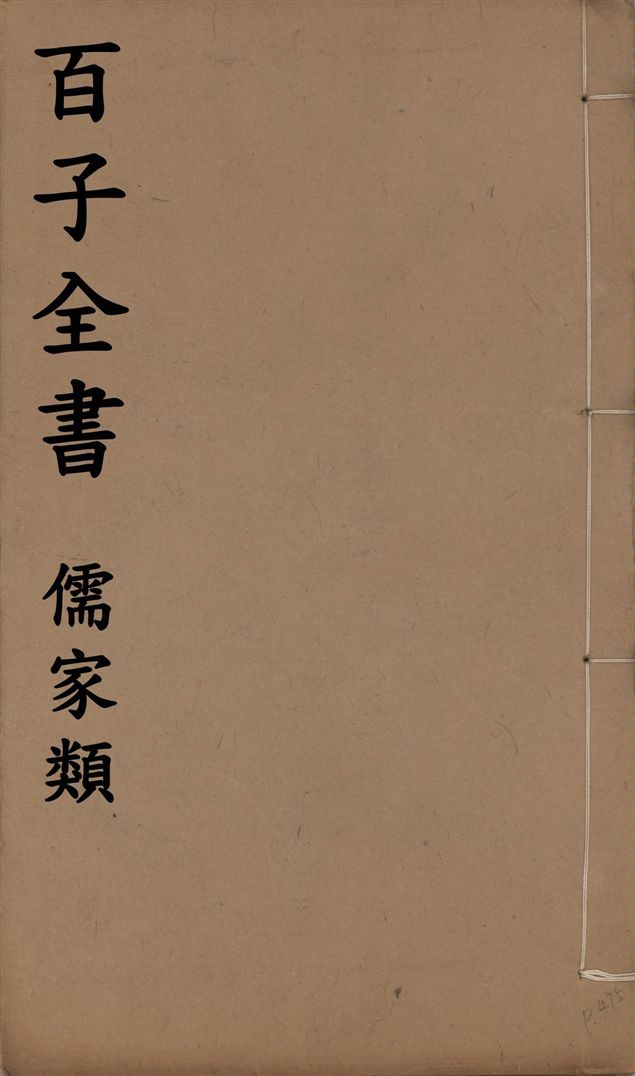 百子全書 儒家類
p.475